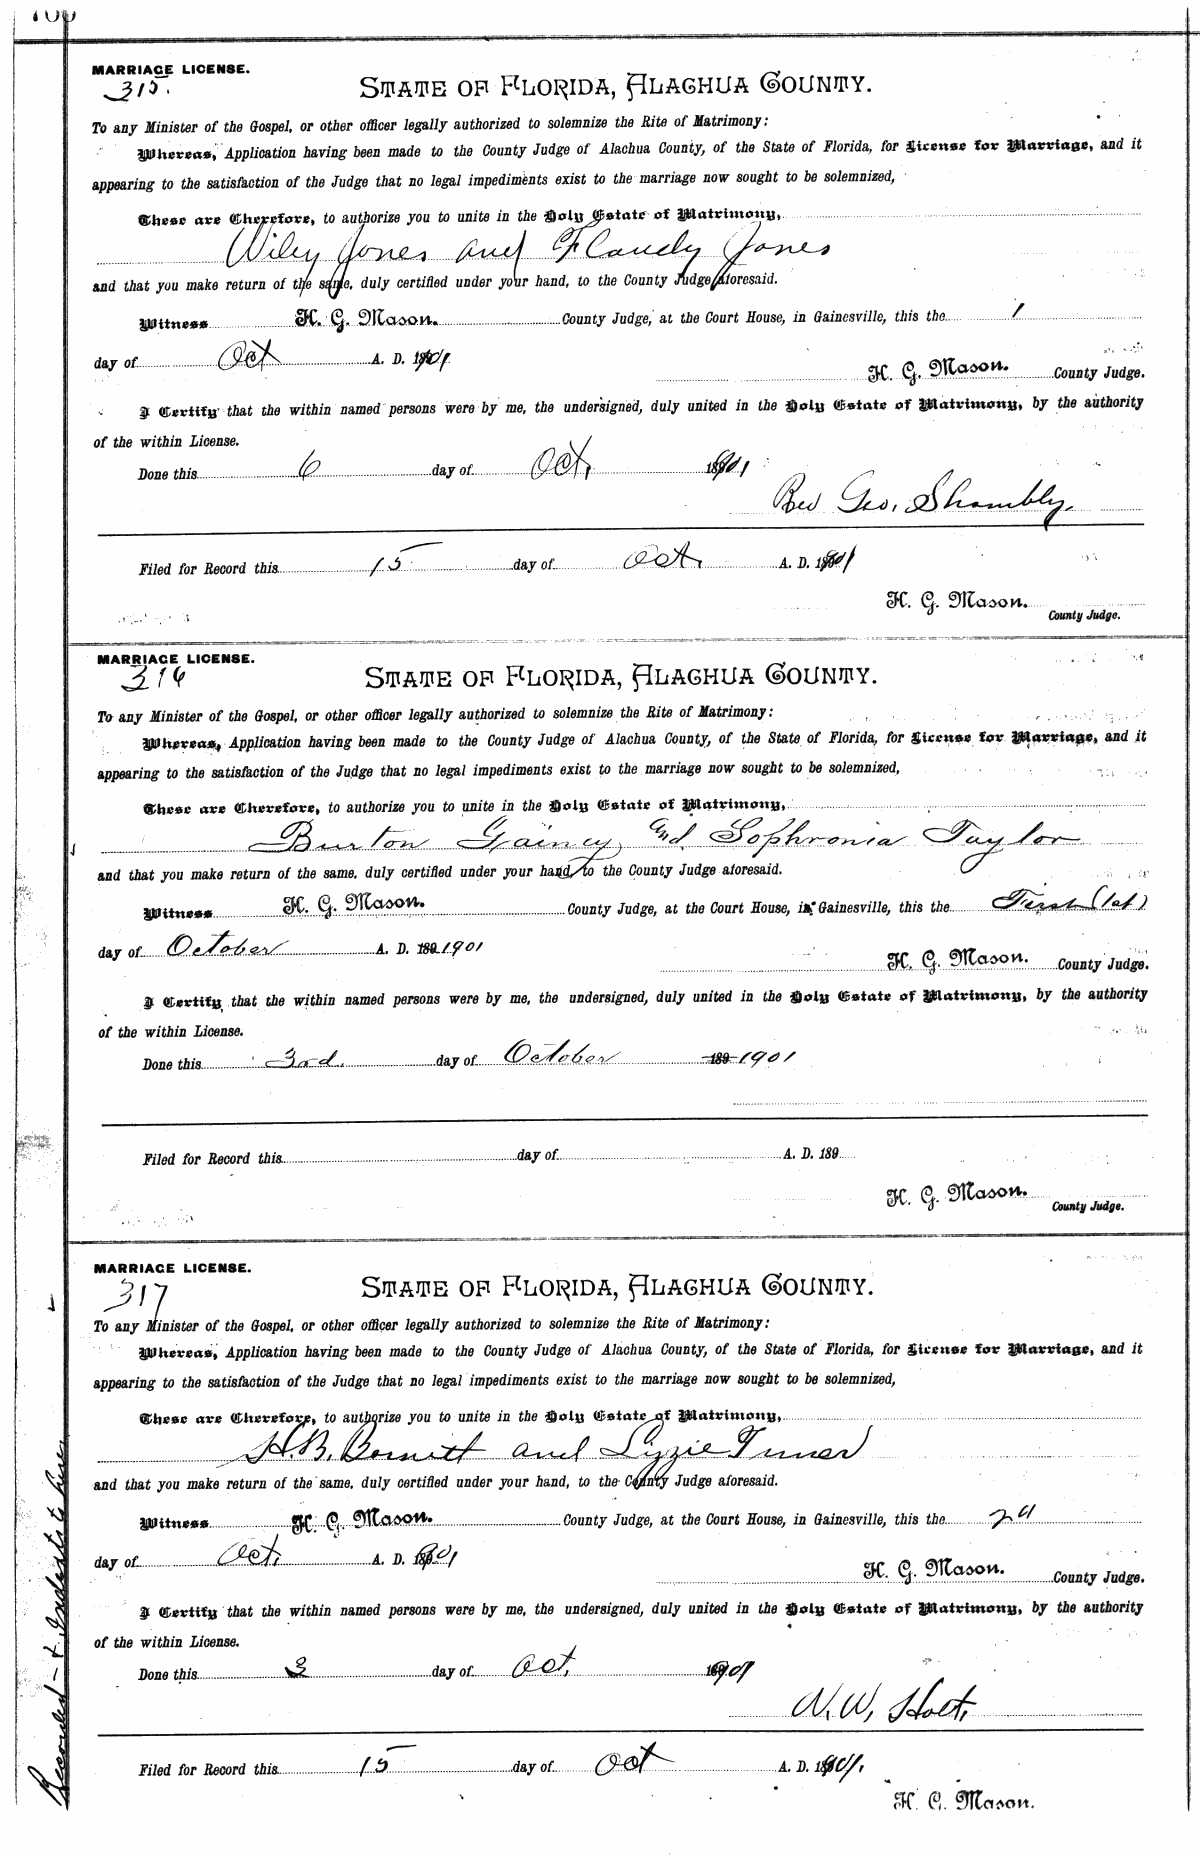 MARRIAGE LICENSE.
315.
STATE OF FLORIDA, ALACHUA COUNTY.
To any Minister of the Gospel, or other officer legally authorized to solemnize the Rite of Matrimony:
Whereas, Application having been made to the County Judge of Alachua County, of the State of Florida, for License for Marriage, and it
appearing to the satisfaction of the Judge that no legal impediments exist to the marriage now sought to be solemnized,
These are Therefore, to authorize you to unite in the Holy Estate of Matrimony,
Wiley Jones and Flaudy Jones
and that you make return of the same, duly certified under your hand, to the County Judge aforesaid.
Witness H. G. Mason. County Judge, at the Court House, in Gainesville, this the 1
day of Oct A. D. 1901
H. G. Mason. County Judge.
I Certify that the within named persons were by me, the undersigned, duly united in the Holy Estate of Matrimony, by the authority
of the within License.
Done this 6 day of Oct. 1901
Rev Geo. Shambly.
Filed for Record this 15 day of Oct. A. D. 1901
H. G. Mason.
County Judge.
MARRIAGE LICENSE.
316
STATE OF FLORIDA, ALACHUA COUNTY.
To any Minister of the Gospel, or other officer legally authorized to solemnize the Rite of Matrimony:
Whereas, Application having been made to the County Judge of Alachua County, of the State of Florida, for License for Marriage, and it
appearing to the satisfaction of the Judge that no legal impediments exist to the marriage now sought to be solemnized,
These are Therefore, to authorize you to unite in the Holy Estate of Matrimony,
Burton Gainey and Sophronia Taylor
and that you make return of the same, duly certified under your hand, to the County Judge aforesaid.
Witness H. G. Mason. County Judge, at the Court House, in Gainesville, this the First (1st)
day of October A. D. 189 1901
H. G. Mason. County Judge.
I Certify that the within named persons were by me, the undersigned, duly united in the Holy Estate of Matrimony, by the authority
of the within License.
Done this 3rd. day of October 189 1901
Filed for Record this day of A. D. 189
H. G. Mason.
County Judge.
MARRIAGE LICENSE.
317
STATE OF FLORIDA, ALACHUA COUNTY.
To any Minister of the Gospel, or other officer legally authorized to solemnize the Rite of Matrimony:
Whereas, Application having been made to the County Judge of Alachua County, of the State of Florida, for License for Marriage, and it
appearing to the satisfaction of the Judge that no legal impediments exist to the marriage now sought to be solemnized,
These are Therefore, to authorize you to unite in the Holy Estate of Matrimony,
H. B. and Lizzie Turner
and that you make return of the same, duly certified under your hand, to the County Judge aforesaid.
Witness H. G. Mason. County Judge, at the Court House, in Gainesville, this the 2d
day of Oct. A. D. 1901
H. G. Mason. County Judge.
I Certify that the within named persons were by me, the undersigned, duly united in the Holy Estate of Matrimony, by the authority
of the within License.
Done this 3 day of Oct. 1901
N. W. Holt.
Filed for Record this 15 day of Oct A. D. 1901.
H. G. Mason.
Recorded & to here